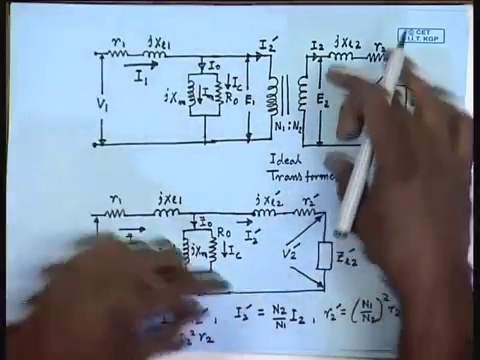 © CET
I.I.T. KGP
r₁ jxℓ₁ I₂′ I₂ jxℓ₂ r₂
I₁ I₀
V₁ jxₘ Iₘ R₀ I_c E₁ E₂
N₁ : N₂
Ideal
Transforme
r₁ jxℓ₁ jxℓ₂′ r₂′
I₀ R₀ I₂′
jxₘ I_c V₂′ Zℓ₂′
I₂′ = N₂/N₁ I₂ , r₂′ = (N₁/N₂)² r₂
² r₂